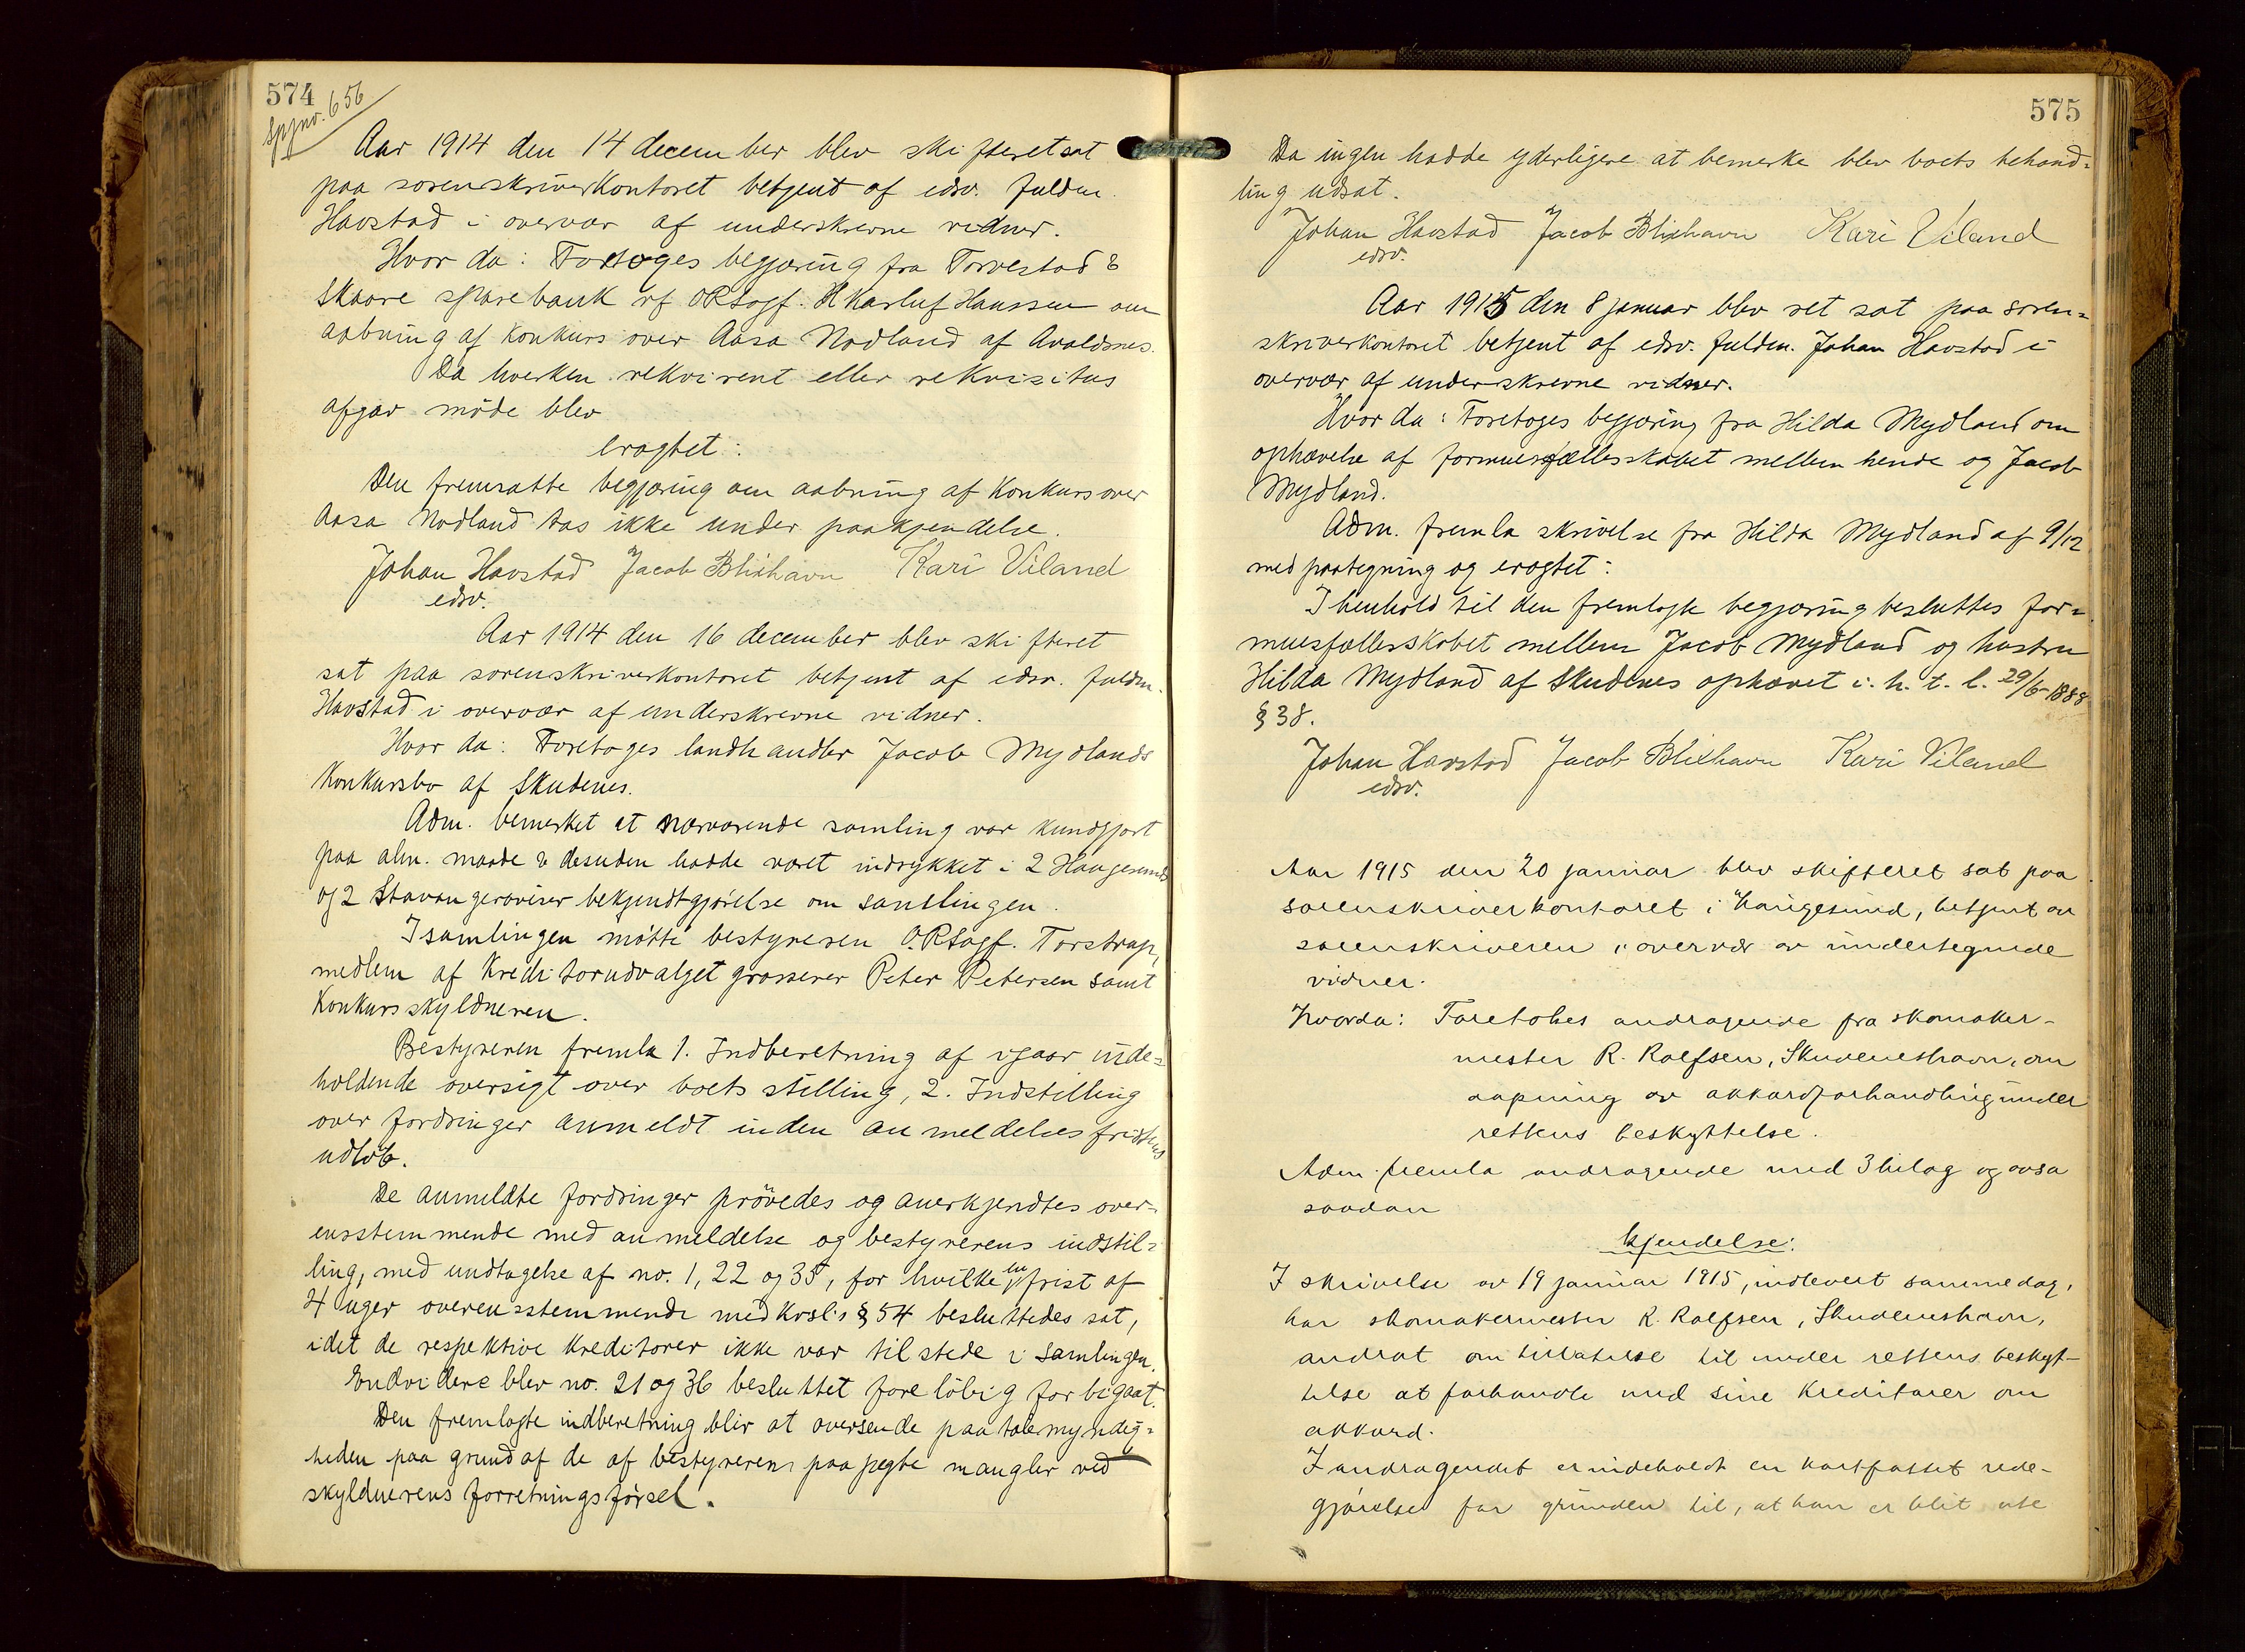 574
Spjnr. 656
Aar 1914 den 14 december blev skifteret sat
paa sorenskriverkontoret betjent af edsv. fuldm.
Havstad i overvær af underskrevne vidner.
Hvor da: Foretoges begjæring fra Torvestad &
Skaare sparebank v/ ORSagf. Karluf Hanssen om
aabning af konkurs over Aasa Nodland af Avaldsnes.
Da hverken rekvirent eller rekvisitus
afgav möde blev
eragtet:
Den fremsatte begjæring om aabning af konkurs over
Aasa Nodland tas ikke under paakjendelse.
Johan Havstad Jacob Blixhavn Kari Viland
edsv.
Aar 1914 den 16 december blev skifteret
sat paa sorenskriverkontoret betjent af edsv. fuldm.
Havstad i overvær af underskrevne vidner.
Hvor da: Foretoges landhandler Jacob Mydlands
Konkursbo af Skudenes.
Adm. bemerket at nærværende samling var kundgjort
paa alm. maade & desuden hadde været indrykket i 2 Haugesunds
og 2 Stavangeraviser bekjendtgjörelse om samlingen.
I samlingen mötte bestyreren O.RSagf. Torstrup,
medlem af Kreditorudvalget grosserer Peter Petersen samt
Konkursskyldneren.
Bestyreren fremla 1. Indberetning af igaar inde=
holdende oversigt over boets stilling, 2. Indstilling
over fordringer anmeldt inden anmeldelsesfristens
udlöb.
De anmeldte fordringer prövedes og anerkjendtes over=
ensstemmende med anmeldelse og bestyrerens indstil=
ling, med undtagelse af no. 1, 22 og 35, for hvilke en frist af
4 uger overensstemmende med kvsl's § 54 besluttedes sat,
idet de respektive kreditorer ikke var tilstede i samlingen.
Endvidere blev no. 21 og 36 besluttet forelöbig forbigaat.
Den fremlagte indberetning blir at oversende paatalemyndig=
heden paa grund af de af bestyreren paapegte mangler ved
skyldnerens forretningsförsel.
575
Da ingen hadde yderligere at bemerke blev boets behand=
ling udsat.
Johan Havstad Jacob Blixhavn Kari Viland
edsv.
Aar 1915 den 8 januar blev ret sat paa soren=
skriverkontoret betjent af edsv. fuldm. Johan Havstad i
overvær af underskrevne vidner.
Hvor da: Foretoges begjæring fra Hilda Mydland om
ophævelse af formuesfællesskabet mellem hende og Jacob
Mydland.
Adm. fremla skrivelse fra Hilda Mydland af 9/12
med paategning og eragtet:
I henhold til den fremlagte begjæring besluttes for=
muesfællesskabet mellem Jacob Mydland og hustru
Hilda Mydland af Skudenes ophævet i. h. t. l. 29/6-1888
§ 38.
Johan Havstad Jacob Blixhavn Kari Viland
edsv.
Aar 1915 den 20 januar blev skifteret sat paa
sorenskriverkontoret i Haugesund, betjent av
sorenskriveren i overvær av undertegnede
vidner.
Hvorda: Foretokes andragende fra skomaker-
mester R. Rolfsen, Skudeneshavn, om
aapning av akkordforhandling under
rettens beskyttelse.
Adm. fremla andragende med 3 bilag og avsa
saadan
kjendelse:
I skrivelse av 19 januar 1915, indlevert samme dag,
har skomakermester R. Rolfsen, Skudeneshavn,
andrat om tillatelse til under rettens beskyt-
telse at forhandle med sine kreditorer om
akkord.
I andragendet er indeholdt en kortfattet rede-
gjörelse for grunden til, at han er blit ute